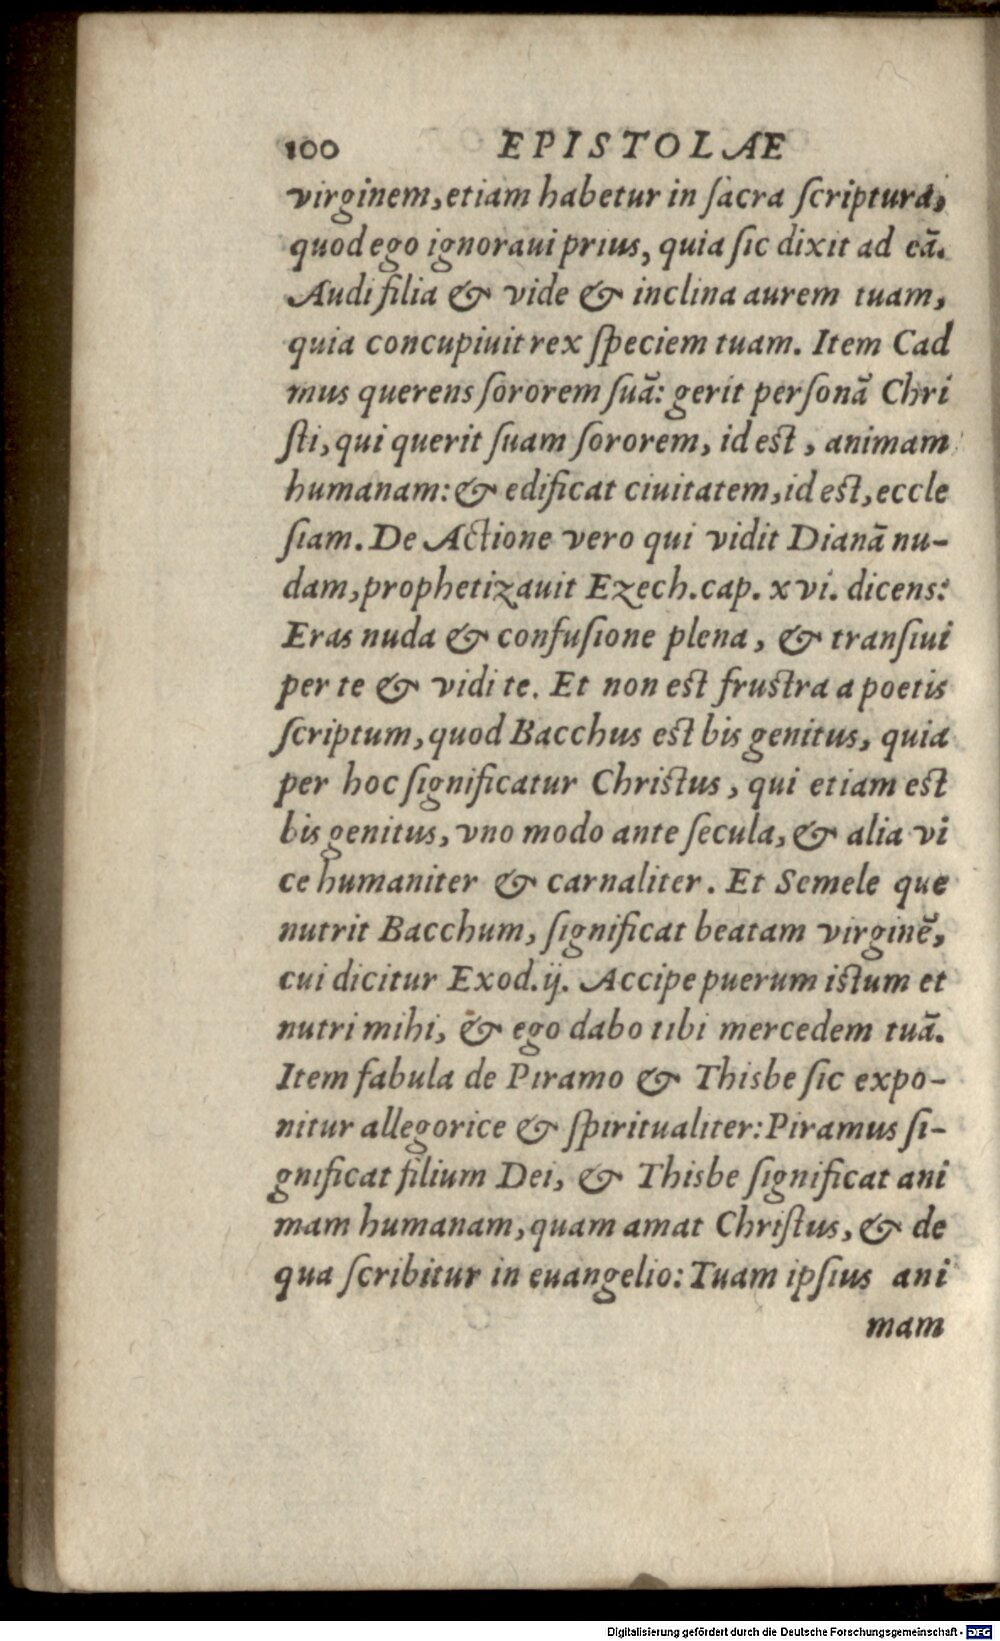 100 EPISTOLAE
virginem, etiam habetur in ſacra ſcriptura,
quod ego ignoraui prius, quia ſic dixit ad eā.
Audi filia & vide & inclina aurem tuam,
quia concupiuit rex ſpeciem tuam. Item Cad
mus querens ſororem ſuā: gerit perſonā Chri
ſti, qui querit ſuam ſororem, id eſt, animam
humanam: & edificat ciuitatem, id eſt, eccle
ſiam. De Actione vero qui vidit Dianā nu-
dam, prophetizauit Ezech. cap. xvi. dicens:
Eras nuda & confuſione plena, & tranſiui
per te & vidi te. Et non eſt fruſtra a poetis
ſcriptum, quod Bacchus eſt bis genitus, quia
per hoc ſignificatur Chriſtus, qui etiam eſt
bis genitus, vno modo ante ſecula, & alia vi
ce humaniter & carnaliter. Et Semele que
nutrit Bacchum, ſignificat beatam virginē,
cui dicitur Exod. ij. Accipe puerum iſtum et
nutri mihi, & ego dabo tibi mercedem tuā.
Item fabula de Piramo & Thisbe ſic expo-
nitur allegorice & ſpiritualiter: Piramus ſi-
gnificat filium Dei, & Thisbe ſignificat ani
mam humanam, quam amat Chriſtus, & de
qua ſcribitur in euangelio: Tuam ipſius ani
mam
Digitalisierung gefördert durch die Deutsche Forschungsgemeinschaft - DFG